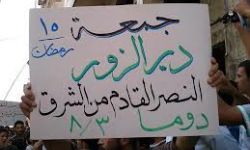 جمعة
١٥
رمضان
دير الزور
النصر القادم من الشرق
دوما ٨/٣